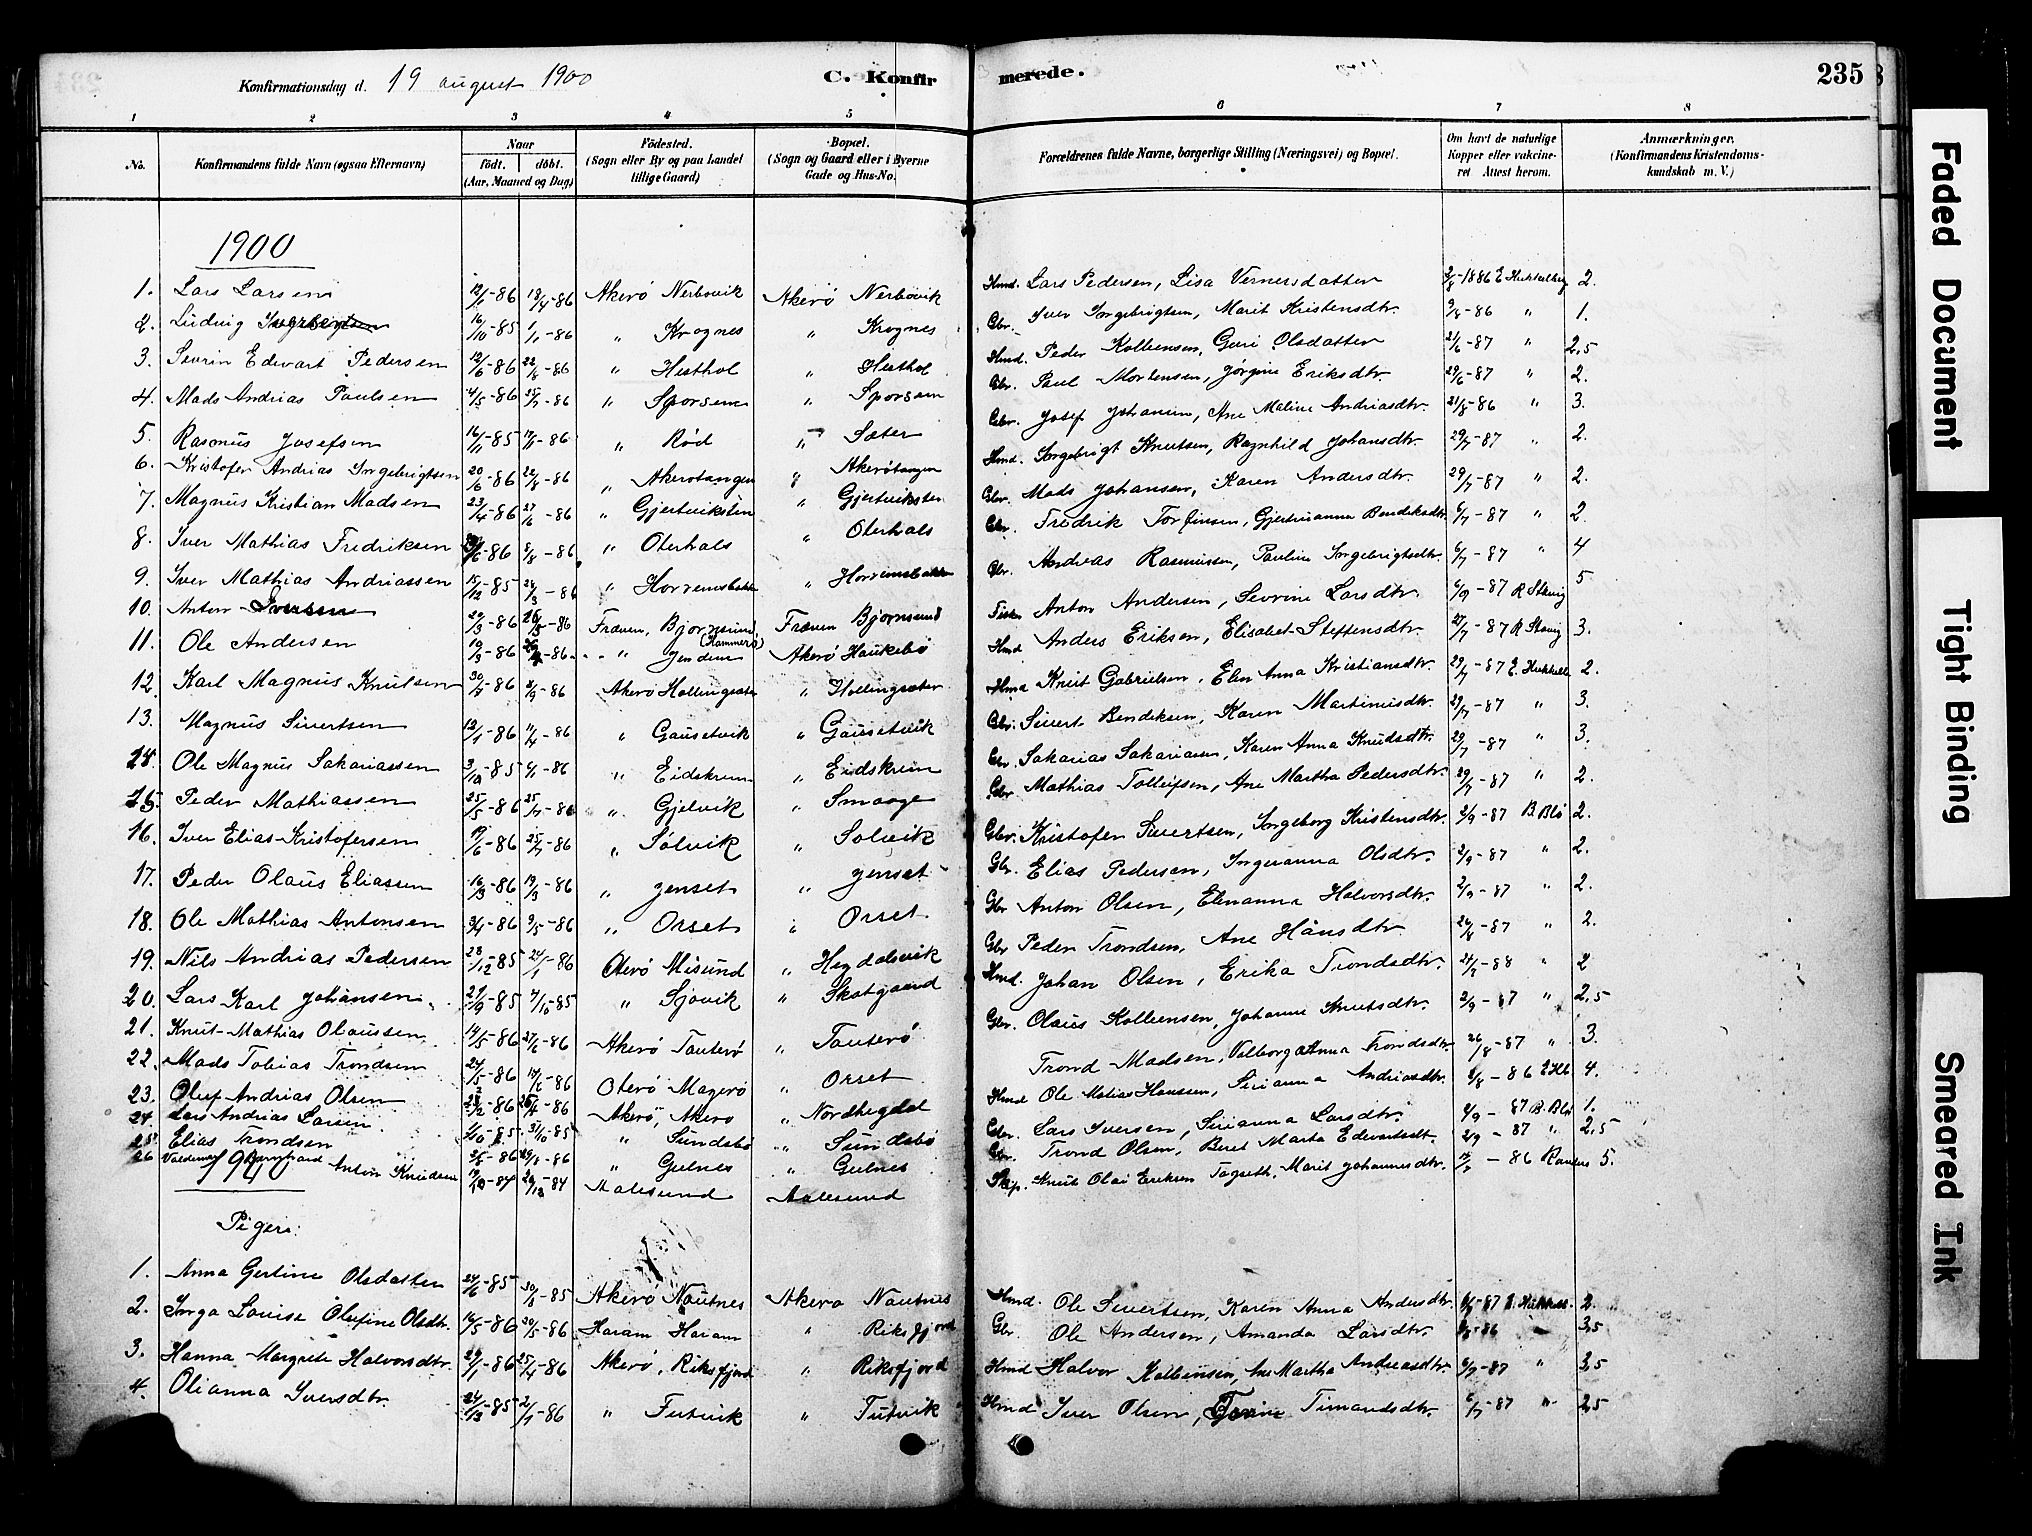 Konfirmationsdag d. 19 august 1900 C. Konfirmerede. 235
1 2 3 4 5 6 7 8
No. Konfirmandens fulde Navn (ogsaa Efternavn) Naar födt. döbt. (Aar, Maaned og Dag) Födested. (Sogn eller By og paa Landet tillige Gaard) Bopæl. (Sogn og Gaard eller i Byerne Gade og Hus-No. Forældrenes fulde Navne, borgerlige Stilling (Næringsvei) og Bopæl. Om havt de naturlige Kopper eller vakcineret Attest herom. Anmærkninger. (Konfirmandens Kristendomskundskab m. V.)
1900
1. Lars Larsen 12/1-86 18/4-86 Akerö Nerbövik Akerö Nerbövik Hmd. Lars Pedersen, Lisa Vernersdatter 2/8-1886 2.
2. Ludvig 16/10-85 1/1-86 " Krognes " Krognes Gbr. Iver Ingebrigtsen, Marit Kristensdtr. 9/8-86 " 1.
3. Sevrin Edvart Pedersen 12/6-86 22/8-86 " Hesthol " Hesthol Hmd. Peder Kolbensen, Guri Olsdatter 21/6-87 " 2,5
4. Mads Andrias Paulsen 4/5-86 25/7-86 " Sporsem " Sporsem Gbr. Paul Mortensen, Jörgine Eriksdtr. 29/6-87 " 2.
5. Rasmus Josefsen 16/11-85 17/1-86 " Röd " Sæter Gbr. Josef Johansen, Ane Maline Andriasdtr. 21/8-86 " 3.
6. Kristofer Andrias Ingebrigtsen 20/6-86 22/8-86 " Akerötangen " Akerötangen Hmd. Ingebrigt Knutsen, Ragnhild Johansdtr. 29/7-87 " 2.
7. Magnus Kristian Madsen 23/4-86 27/6-86 " Gjertviksten " Gjertviksten Gbr. Mads Johansen, Karen Andersdtr. 29/7-87 " 2.
8. Iver Mathias Fredriksen 8/8-86 " Oterhals " Oterhals Gbr. Fredrik Torfinsen, Gjertruanna Bendiksdtr. 6/7-87 " 2.
9. Iver Mathias Andriassen 15/12-85 28/3-86 " Horremsbakk " Horremsbakken Gbr. Andreas Rasmussen, Pauline Ingebrigtsdtr. 6/7-87 " 4
10. Anton Iversen 22/3-86 Fræven, Bjornsund Fræven Bjornsund Anton Andersen, Sevrine Larsdtr. 6/9-87 5
11. Ole Andersen 19/3-86 " Jendem (Hammerö) Akerö Haukebö Hmd Anders Eriksen, Elisabet Steffensdtr. 27/7-87 3.
12. Karl Magnus Knutsen 30/5-86 -86 Akerö Hollingsæter " Hollingsæter Hmd Knut Gabrielsen, Elen Anna Kristiansdtr. 29/7-87 2.
13. Magnus Sivertsen 12/1-86 11/4-86 " Gausetvik " Gausetvik Gbr. Sivert Bendiksen, Karen Martinusdtr. 29/7-87 " 3.
14. Ole Magnus Sakariassen 3/10-85 6/1-86 " Eidskrem " Eidskrem Gbr. Sakarias Sakariasen, Karen Anna Knudsdtr. 29/7-87 " 3.
15. Peder Mathiassen 25/5-86 25/7-86 " Gjelvik " Smaage Gbr. Mathias Tolleifsen, Ane Martha Pedersdtr. 29/7-87 " 2.
16. Iver Elias Kristofersen 19/6-86 25/7-86 " Solvik " Solvik Gbr. Kristofer Sivertsen, Ingeborg Kristensdtr. 2/9-87 B. Blö 2.
17. Peder Olaus Eliassen 16/3-86 19/3-86 " Jenset " Jenset Gbr. Elias Pedersen, Ingeranna Olsdtr. 2/9-87 " 2.
18. Ole Mathias Antonsen 3/4-86 9/5-86 " Orset " Orset Gbr Anton Olsen, Elenanna Halvorsdtr. 2/9-87 " 2.
19. Nils Andrias Pedersen 28/12-85 24/1-86 Oterö Misund " Hegdalsvik Gbr Peder Trondsen, Ane Hansdtr. 24/8-87 " 2.
20. Lars Karl Johansen 27/9-85 4/10-85 " Sjovik " Skotgaard Hmd. Johan Olsen, Erika Trondsdtr. -88 " 2
21. Knut Mathias Olaussen 14/5-86 27/6-86 Akerö Tauterö " Tauterö Gbr. Olaus Kolbensen, Johanne Knutsdtr. 2/9-87 " 2,5
22. Mads Tobias Trondsen 24/5-86 14/6-86 Oterö Magerö " Orset Trond Madsen, Valborganna Trondsdtr. 26/8-87 " 3.
23. Oluf Andrias Olsen -86 -86 Akerö, Akerö " Nordhegdal Hmd Ole Matias Hanssen, Sirianna Andriasdtr. 2/8-86 4.
24. Lars Andrias Larsen -85 31/10-85 " Sundsbö " Sundsbö Gbr. Lars Iversen, Sirianna Larsdtr. 2/9-87 B. Blö 1.
25. Elias Trondsen -86 29/8-86 " Gulnes " Gulnes Gbr. Trond Olsen, Beret Marta Edvartsdt. 2/9-87 " 2,5
26 Valdemar Bernhard Anton Knudsen 19/10-84 -84 Aalesund Aalesund Skip. Knut Olai Eriksen Tagseth, Marit Johannesdtr. -86 5.
1900
Piger:
1. Anna Gertine Olsdatter 24/6-85 30/8-85 Akerö Nautnes Akerö Nautnes Hmd. Ole Sivertsen, Karen Anna Andersdtr. -87 2.
2. Inga Louise Olufine Olsdtr. 14/5-86 20/5-86 Haram Haram " Riksfjord Gbr. Ole Andersen, Amanda Larsdtr. -86 3,5
3. Hanna Margrete Halvorsdtr. 29/1-86 25/4-86 Akerö, Riksfjord " Riksfjord Hmd Halvor Kolbensen, Ane Martha Andreasdtr. 6/7-87 " 3,5
4. Olianna Iversdtr. -85 2/1-86 " Tutvik " Tutvik Hmd Iver Olsen, Timandsdtr. 6/7-87 " 2,5
Faded Document
Tight Binding
Smeared Ink